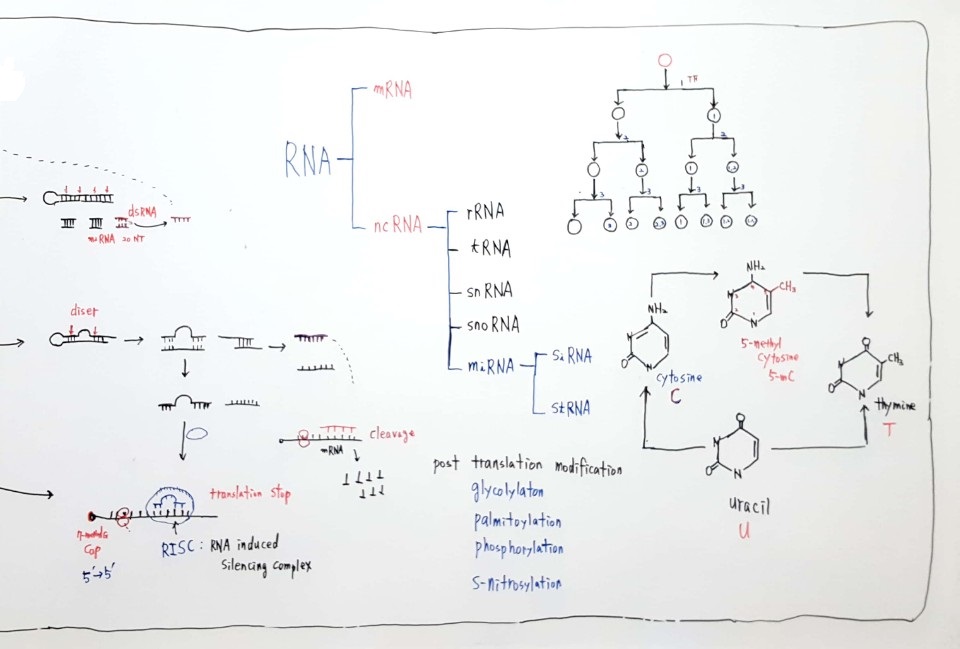 dsRNA
miRNA 20 NT
diser
cleavage
mRNA
translation stop
Cap
5'→5'
RISC: RNA induced
Silencing complex
RNA
mRNA
ncRNA
rRNA
tRNA
snRNA
snoRNA
miRNA
SiRNA
StRNA
post translation modification
glycolylaton
palmitoylation
phosphorylation
S-nitrosylation
1
1
2
2
2
1
1.2
3
3
3
3
3
2
2.3
1
1.3
NH₂
N
N
O
cytosine
C
NH₂
CH₃
N
N
O
5-methyl
cytosine
5-mC
O
CH₃
N
N
O
thymine
T
O
N
N
O
uracil
U